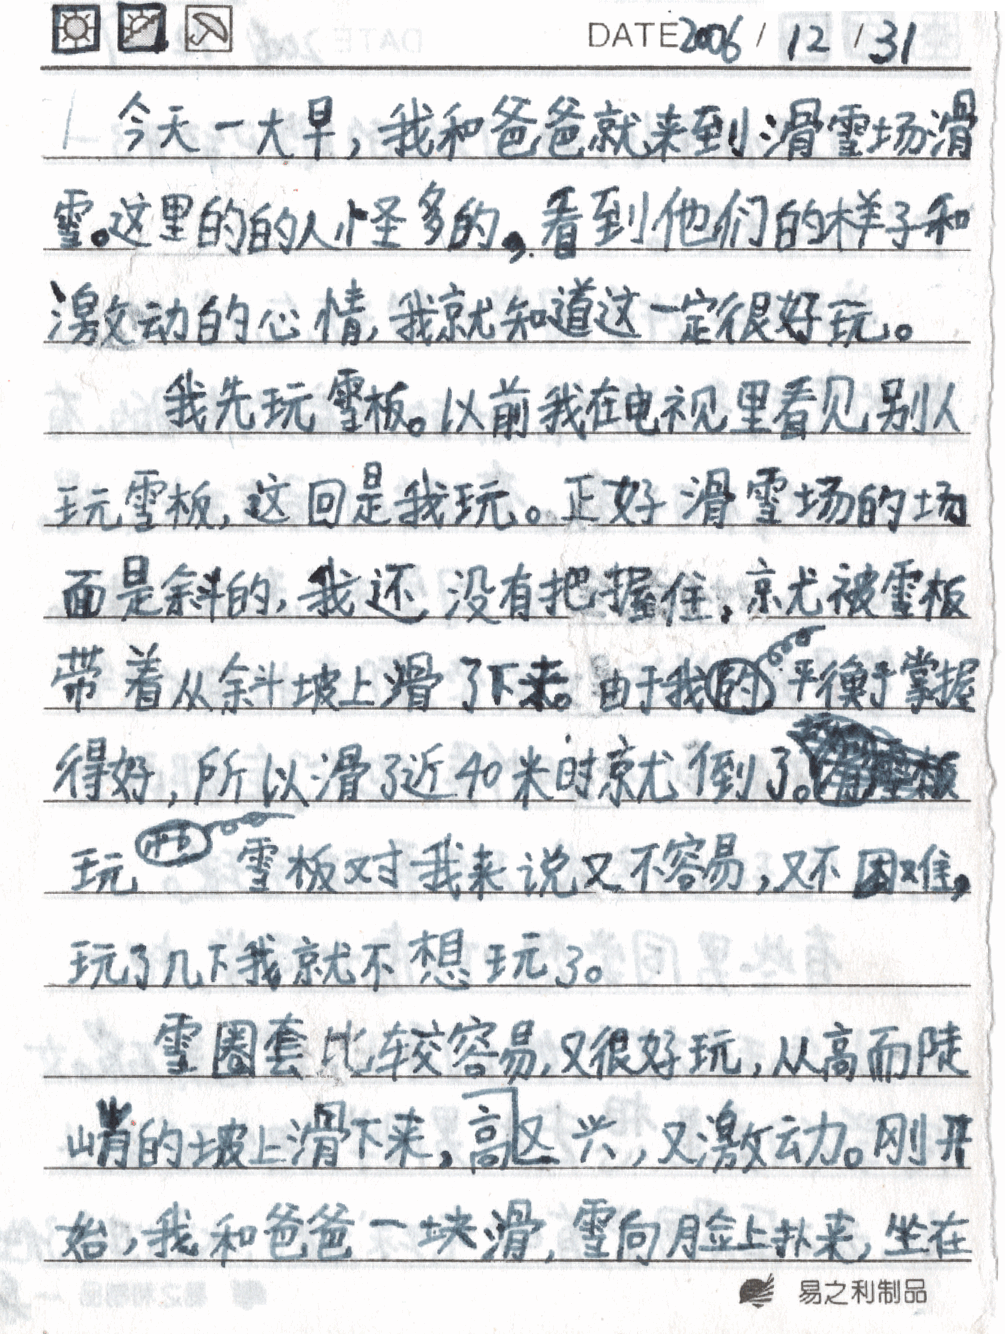 DATE 2006 / 12 / 31
今天一大早，我和爸爸就来到滑雪场滑
雪。这里的的人怪多的，看到他们的样子和
激动的心情，我就知道这一定很好玩。
我先玩雪板。以前我在电视里看见别人
玩雪板，这回是我玩。正好滑雪场的场
面是斜的，我还没有把握住，就被雪板
带着从斜坡上滑了下来。由于我平衡于掌握
得好，所以滑了近40米时就倒了。
玩雪板对我来说又不容易，又不困难，
玩了几下我就不想玩了。
雪圈套比较容易，又很好玩，从高而陡
峭的坡上滑下来，高又兴，又激动。刚开
始，我和爸爸一块滑，雪向脸上扑来，坐在
易之利制品